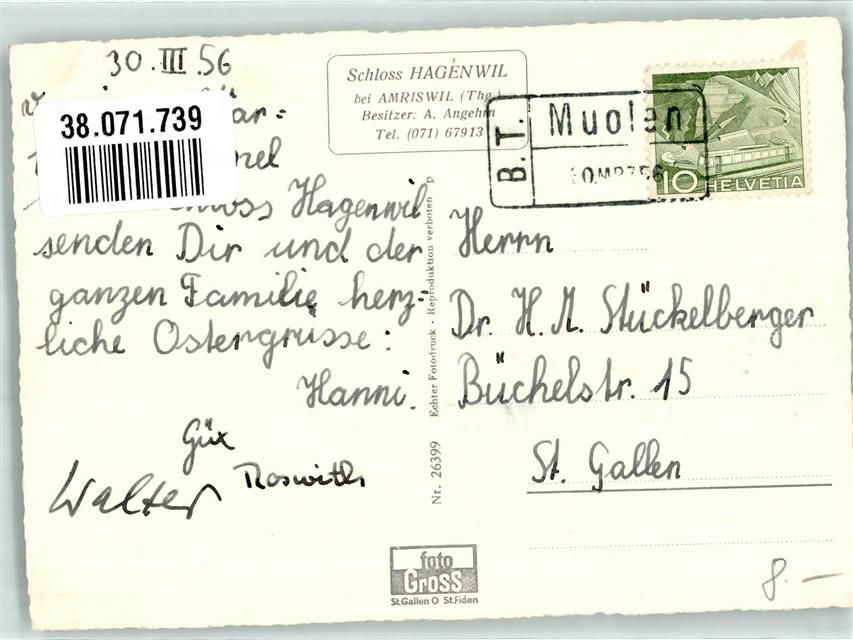 30.III.56
38.071.739
Schloss Hagenwil
senden Dir und der
ganzen Familie herz-
liche Ostergrüsse:
Hanni.
Walter
Roswith
Schloss HAGENWIL
bei AMRISWIL (Thg.)
Besitzer: A. Angehrn
Tel. (071) 67913
B.T. Muolen
10 HELVETIA
Nr. 26399 Echter Fotodruck - Reproduktion verboten
Herrn
Dr. H. M. Stückelberger
Büchelstr. 15
St. Gallen
foto
GROSS
St.Gallen O St.Fiden
8.—